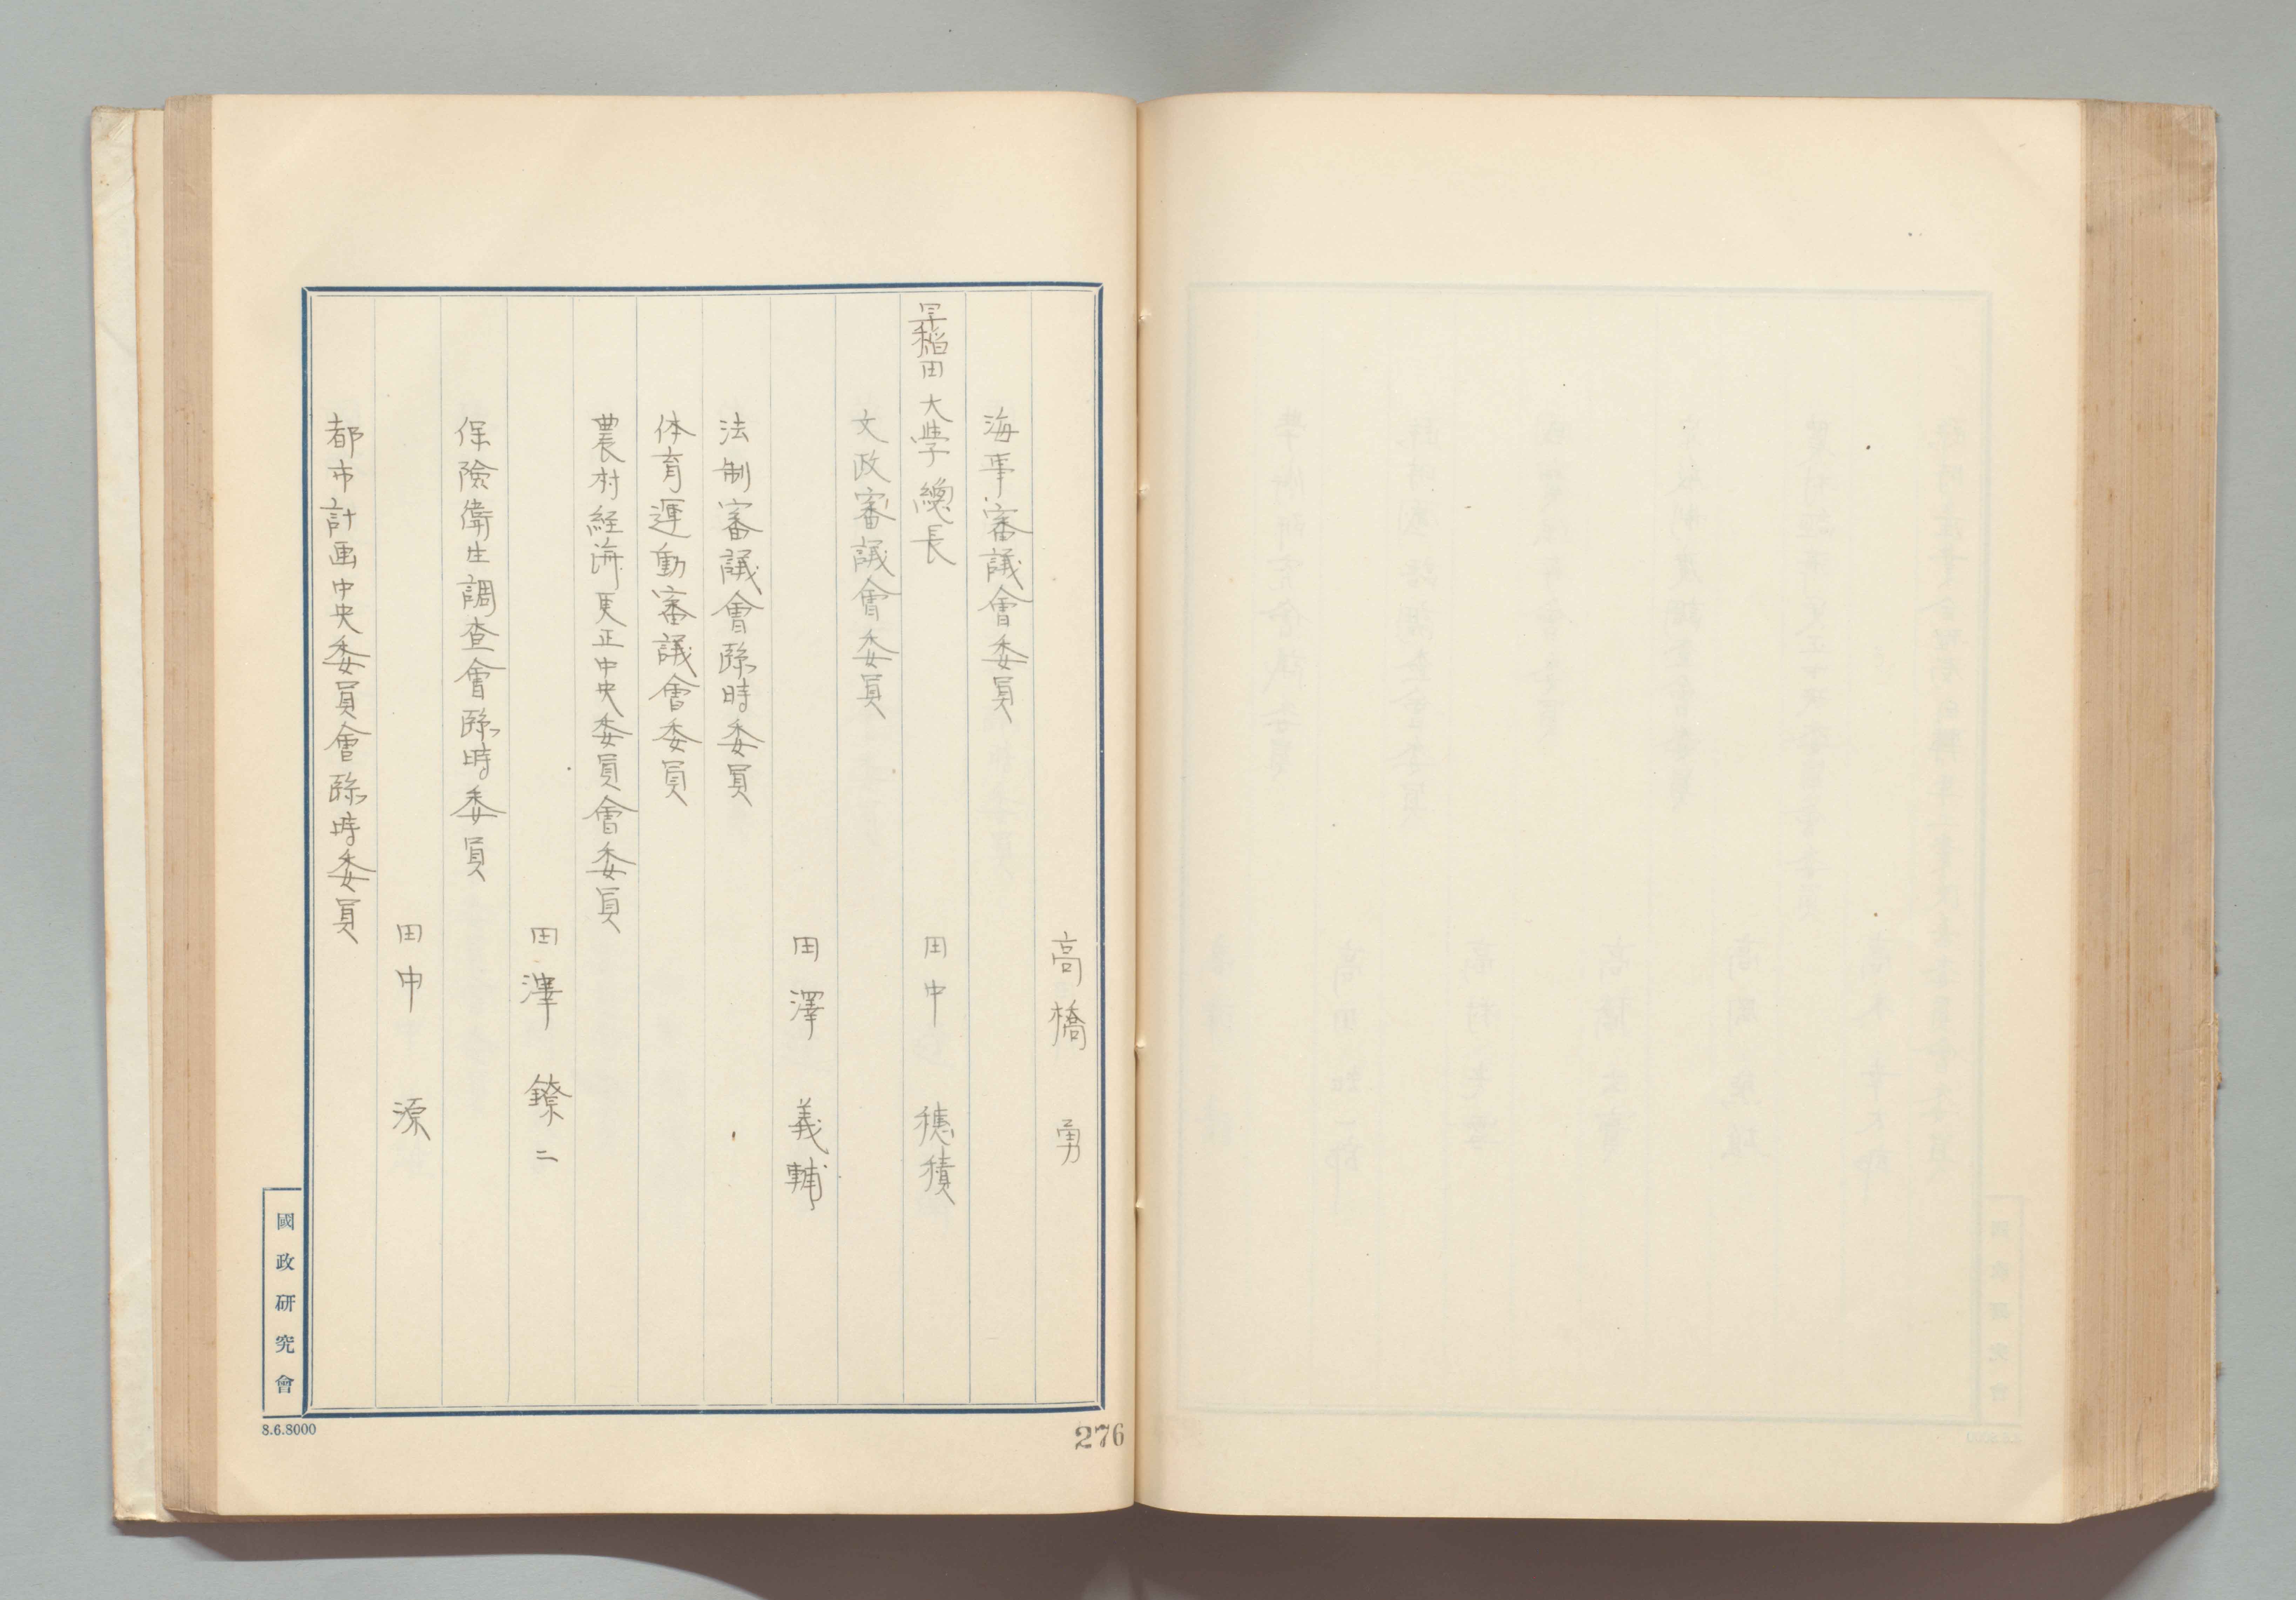 高橋 勇
海事審議會委員
早稲田大學總長 田中 穂積
文政審議會委員
田澤 義輔
法制審議會臨時委員
体育運動審議會委員
農村経済更正中央委員會委員
田澤 鐐二
保險衛生調査會臨時委員
田中 源
都市計画中央委員會臨時委員
國政研究會
8.6.8000
276